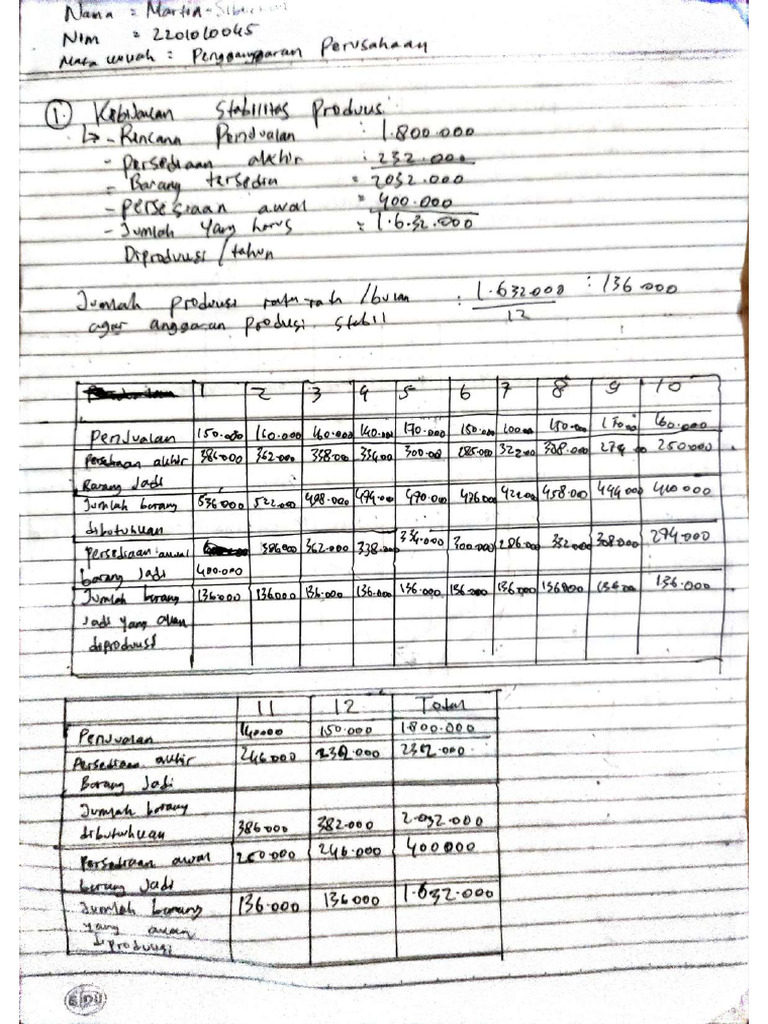 Nama = Martin
NIM = 2201010045
Mata kuliah = Penganggaran Perusahaan
1. Kebijakan Stabilitas Produksi
↳ - Rencana Penjualan : 1.800.000
- Persediaan akhir : 232.000
= Barang tersedia = 2032.000
- Persediaan awal = 400.000
- Jumlah yang harus = 1.632.000
Diproduksi / tahun
Jumlah produksi rata-rata / bulan : 1.632000 : 136 000
12
agar anggaran produksi stabil
1 2 3 4 5 6 7 8 9 10
Penjualan 150.000 160.000 160.000 140.000 170.000 150.000 100.000 150.000 170.000 160.000
Persediaan akhir 386000 362.000 338.000 334.000 300.000 322.000 274.000 250.000
Barang Jadi
Jumlah barang 536000 522.000 498.000 474.000 470.000 436000 422.000 458.000 444.000 410.000
dibutuhkan
Persediaan awal 386000 362.000 338.000 334.000 300.000 286.000 308.000 274.000
barang Jadi 400.000
Jumlah barang 136.000 136000 136.000 136.000 136.000 136.000 136.000 136000 136.000
Jadi yang akan
diproduksi
11 12 Total
Penjualan 140000 150.000 1.800.000
Persediaan akhir 246000 232.000 232.000
Barang Jadi
Jumlah barang
dibutuhkan 386000 382.000 2.032.000
Persediaan awal 250000 246.000 400000
barang Jadi
Jumlah barang 136.000 136000 1.632.000
yang akan
diproduksi